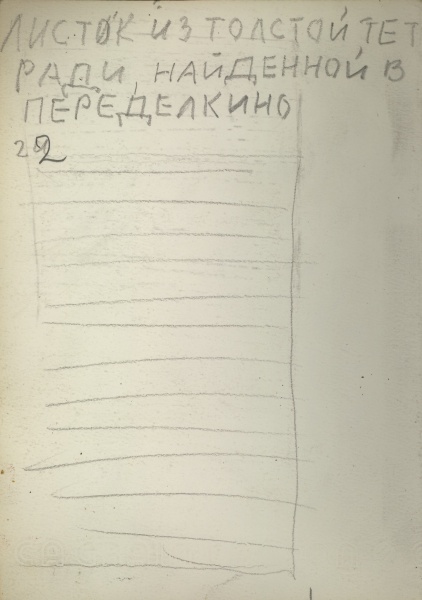 ЛИСТОК ИЗ ТОЛСТОЙ ТЕТ
РАДИ, НАЙДЕННОЙ В
ПЕРЕДЕЛКИНО